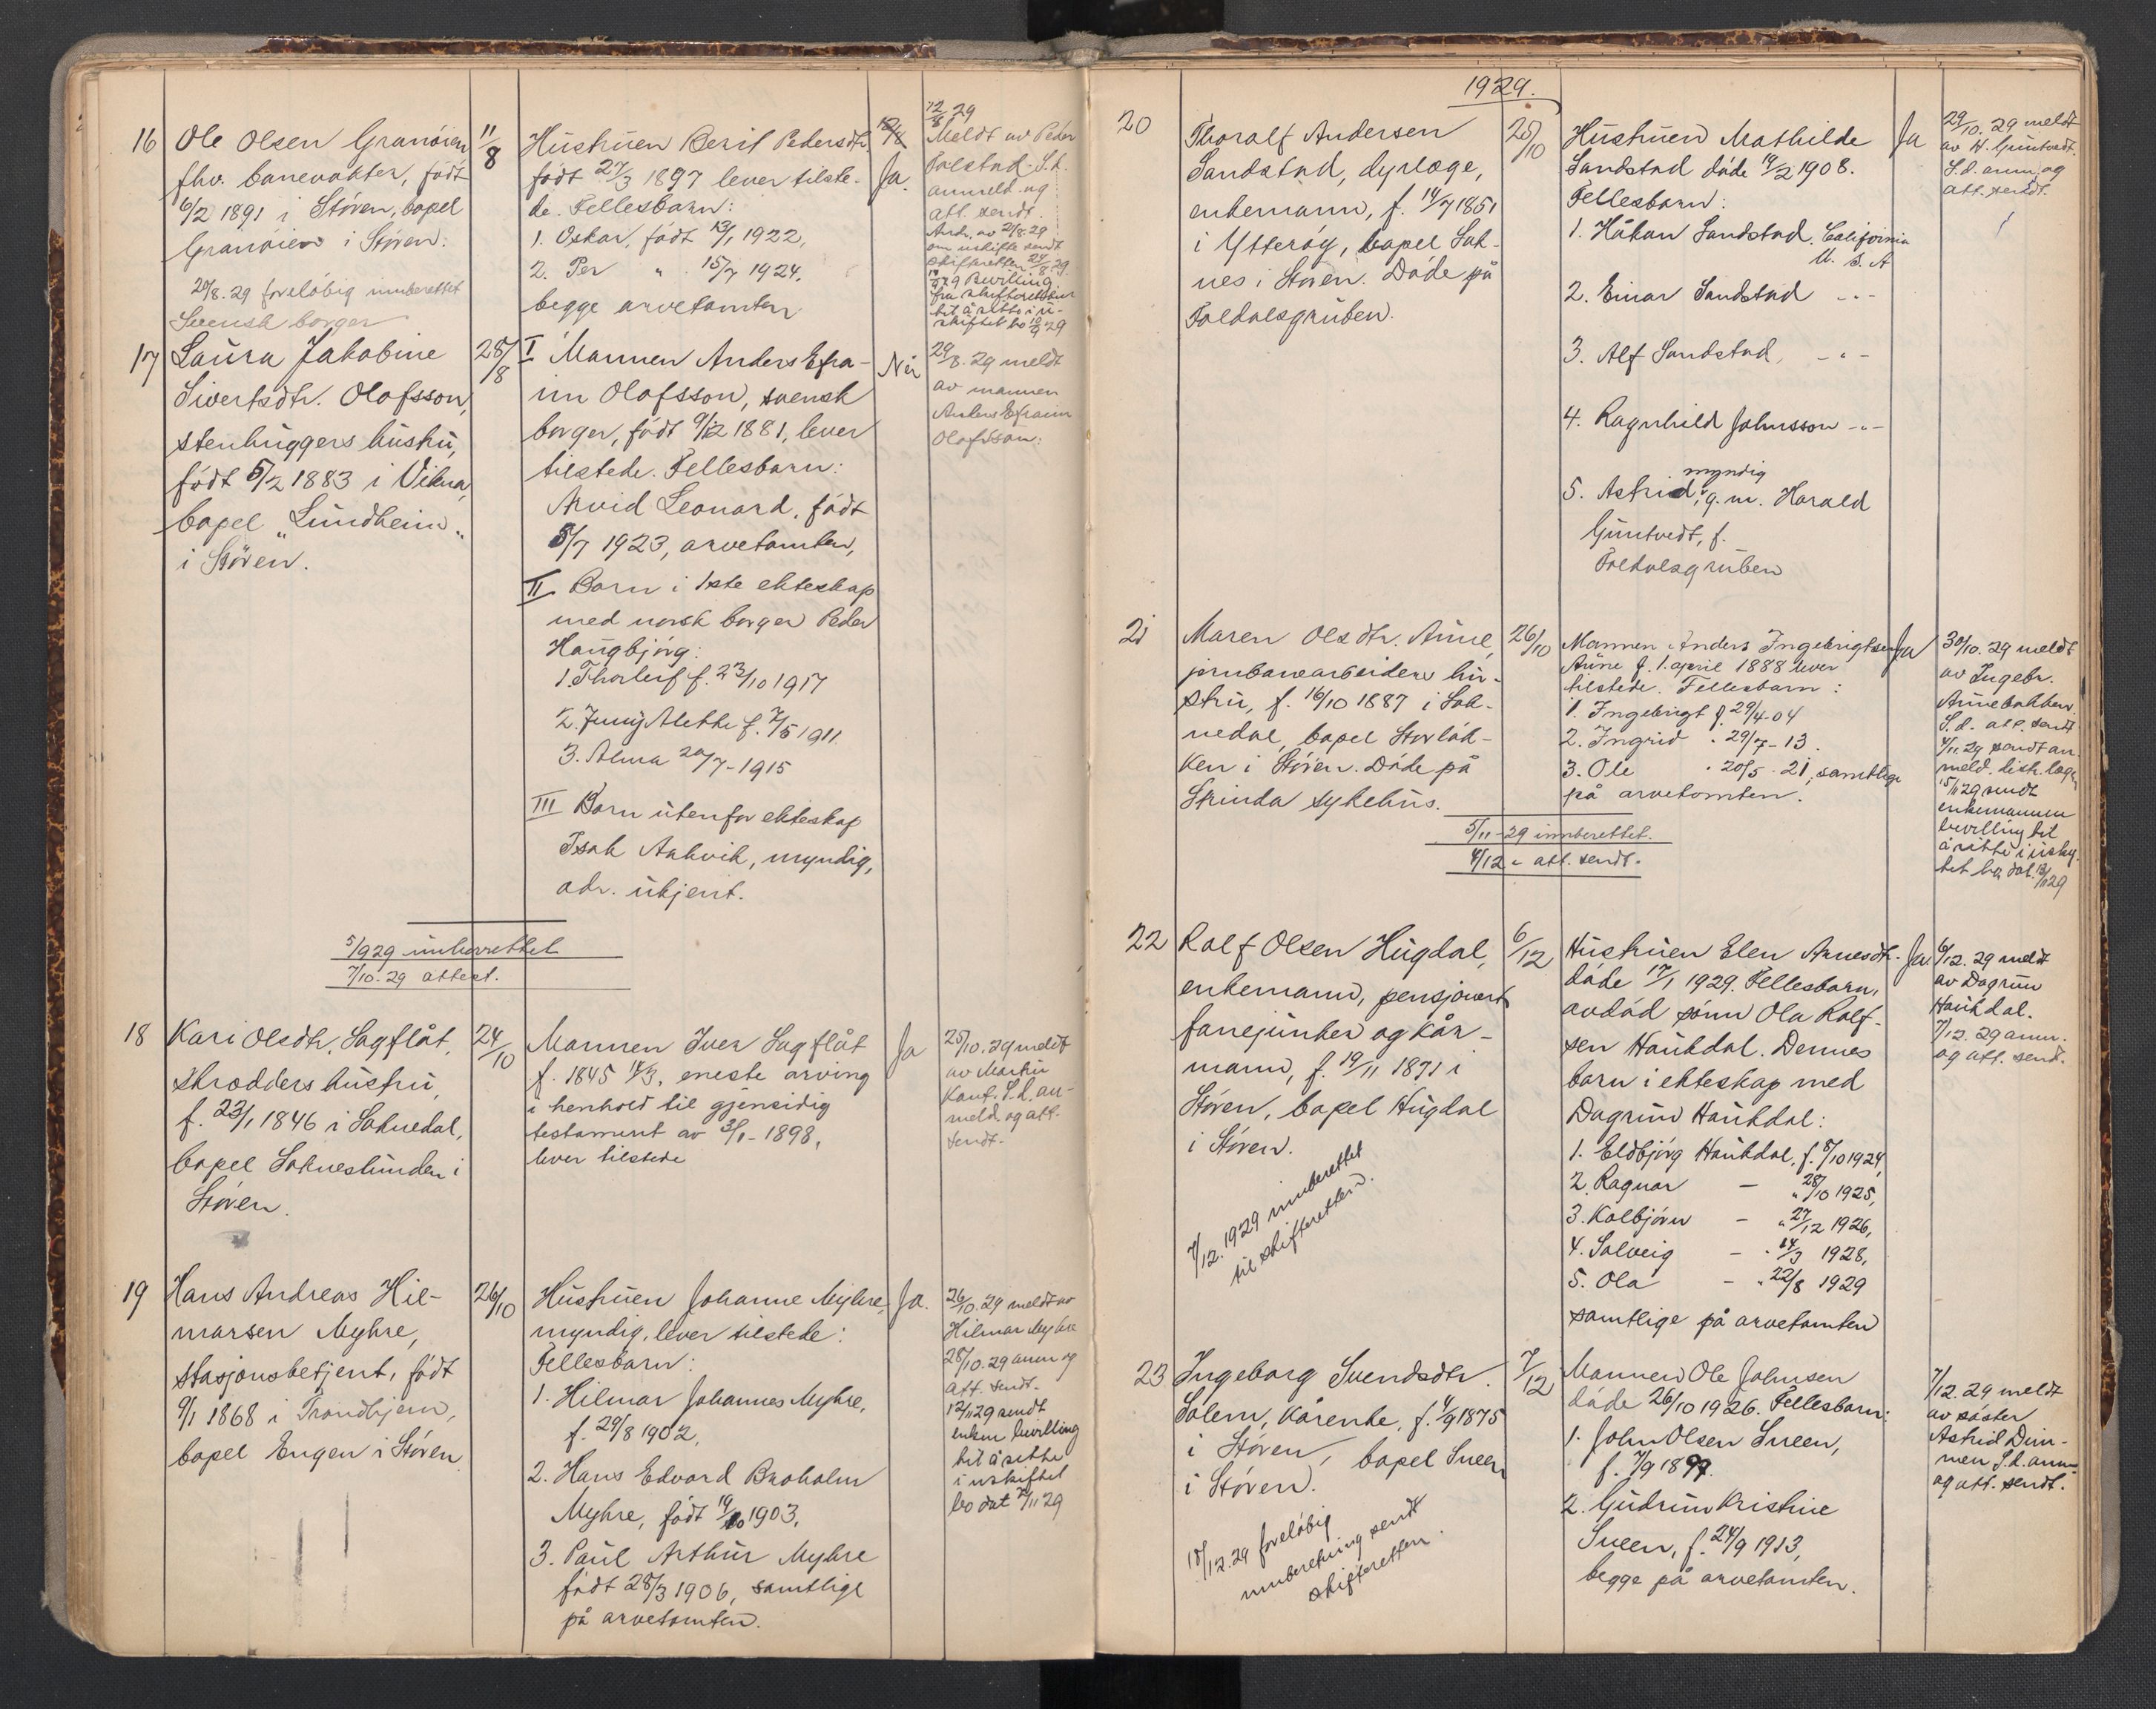 16
Ole Olsen Granöien
fhv. banevakter, född
6/2 1891 i Stören, bopel
Granöien i Stören.
20/8.29 foreløbig innberettet
Svensk borger
11/8
Hustruen Berit Pedersdtr.
född 27/3 1897 lever tilste-
de. Fellesbarn:
1. Oskar, född 13/1 1922,
2. Per " 15/7 1924,
begge arvetomten
Ja.
12/8 29
Meldt av Peder
Folstad. S.d.
anmeld. og
att. sendt.
om uskifte sendt
skifteretten 24/8.29.
Bevilling
fra skifteretten
til å sitte i u-
skiftet bo 10/9 29
17
Laura Jakobine
Sivertsdtr. Olofsson,
stenhuggers hustru,
född 5/2 1883 i Vikna,
bopel "Lundheim"
i Stören.
28/8
I Mannen Anders Efra-
im Olofsson, svensk
borger, född 9/12 1881, lever
tilstede. Fellesbarn:
Arvid Leonard, född
5/7 1923, arvetomten,
II Barn i 1ste ekteskap
med norsk borger Peder
Haugbjörg:
1. Thorleif f. 23/10 1917
2. Jenny Alette f. 7/5 1911
3. Alma 20/7-1915
III Barn utenfor ekteskap
Isak Aakvik, myndig,
adr. ukjent.
Nei
29/8.29 meldt
av mannen
Anders Efraim
Olofsson.
5/9 29 innberettet
7/10.29 attest.
18
Kari Olsdtr. Sagflåt,
skredders hustru,
f. 23/1 1846 i Soknedal,
bopel Sokneslunden i
Stören.
24/10
Mannen Iver Sagflåt
f. 1845 14/3, eneste arving
i henhold til gjensidig
testament av 3/1-1898,
lever tilstede
Ja
25/10.29 meldt
av Martin
Kant. S.d. an-
meld. og att.
sendt.
19
Hans Andreas Hil-
marsen Myhre,
stasjonsbetjent, född
9/1 1868 i Trondhjem,
bopel Engen i Stören
26/10
Hustruen Johanne Myhre,
myndig, lever tilstede:
Fellesbarn:
1. Hilmar Johannes Myhre,
f. 29/8 1902,
2. Hans Edvard Broholm
Myhre, född 19/10 1903.
3. Paul Arthur Myhre
född 28/3 1906, samtlige
på arvetomten.
Ja.
26/10.29 meldt av
Hilmar Myhre
28/10.29 anm og
att. sendt.
12/11 29 sendt
enken bevilling
til å sitte
i uskiftet
bo dat 7/11 29
1929.
20
Thoralf Andersen
Sandstad, dyrlæge,
enkemann, f. 14/7 1851
i Ytterøy, bopel Sok-
nes i Stören. Døde på
Foldalsgruben.
25/10
Hustruen Mathilde
Sandstad døde 19/2 1908.
Fellesbarn:
1. Håkon Sandstad. California
U.S.A
2. Einar Sandstad -"-
3. Alf Sandstad, -"-
4. Ragnhild Johnsson -"-
5. Astrid, myndig g.m. Harald
Guntvedt, f.
Foldalsgruben
Ja
29/10.29 meldt
av H. Guntvedt.
S.d. anm. og
att. sendt.
21
Maren Olsdtr. Aune,
jernbanearbeiders hu-
stru, f. 16/10 1887 i Sok-
nedal, bopel Storløk-
ken i Stören. Døde på
Strinda sykehus.
26/10
Mannen Anders Ingebrigtsen
Aune f. 1. april 1888 lever
tilstede. Fellesbarn:
1. Ingebrigt f. 29/4-04
2. Ingrid " 29/7-13.
3. Ole " 20/5-21, samtlige
på arvetomten.
Ja
30/10.29 meldt
av Ingebr.
Aunebakken.
S.d. att. sendt
4/11.29 sendt an
meld. distr.læge
15/11 29 sendt
enkemannen
bevilling til
å sitte i uskif
tet bo dat. 13/11 29
5/11-29 innberettet.
4/12 " att. sendt.
22
Rolf Olsen Hugdal,
enkemann, pensjonert
fanejunker og kår-
mann, f. 19/11 1871 i
Stören, bopel Hugdal
i Stören.
7/12.1929 innberettet
til skifteretten.
6/12
Hustruen Elen Arnesdtr.
døde 17/1 1929. Fellesbarn,
avdød sønn Ola Rolf-
sen Haukdal. Dennes
barn i ekteskap med
Dagrun Haukdal:
1. Eldbjörg Haukdal, f. 8/10 1924,
2. Ragnar - " 28/10 1925,
3. Kolbjörn - " 27/12 1926,
4. Solveig - " 14/3 1928,
5. Ola - " 22/8 1929
samtlige på arvetomten
Ja.
6/12.29 meldt
av Dagrun
Haukdal.
7/12.29 anm.
og att. sendt.
23
Ingeborg Svendsdtr.
Solem, kårenke, f. 4/9 1875
i Stören, bopel Sveen
i Stören.
18/12.29 foreløbig
innberetning sendt
skifteretten.
7/12
Mannen Ole Johnsen
døde 26/10 1926. Fellesbarn:
1. John Olsen Sveen,
f. 7/9 1897.
2. Gudrun Kristine
Sveen, f. 24/9 1913,
begge på arvetomten.
7/12.29 meldt
av søster
Astrid Dim-
men S.d. anm
og att. sendt.